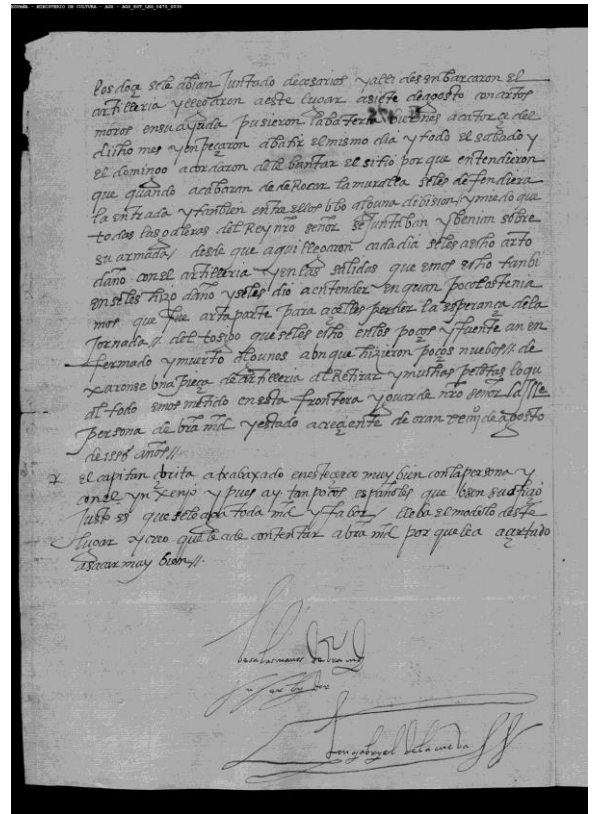 ESPAÑA - MINISTERIO DE CULTURA - AGS - AGS_EST_LEG_0475_0209
los doze se le abian Juntado de cosarios y alli desenbarcaron el
artilleria y llegaron a este lugar a siete de agosto con artos
moros en su ayuda pusieron la bateria buenos a catorze del
dicho mes y enpeçaron a batir el mismo dia y todo el sabado y
el domingo acordaron de lebantar el sitio por que entendieron
que quando acabaran de deRocar la muralla se les defendiera
la entrada y tanbien entre ellos ubo alguna debision y miedo que
todas las galeras del Rey nro señor se juntaban y benian sobre
su armada / desde que aqui llegaron cada dia se les a echo arto
daño con el artilleria y en las salidas que emos echo tanbi
en se les hizo daño y se les dio a entender en quan poco los tenia
mos que fue arta parte para azelles perder la esperança de la
Jornada //. del que se les echo en los poços y fuente an en
fermado y muerto algunos aunque hizieron poços nuebos // de
xaronse una pieça de artilleria al Retirar y muchas pelotas lo qu
al todo emos metido en esta frontera y guarde nro señor la
persona de bra md y estado acreziente de oran de agosto
de 1556 años //
el capitan a trabaxado en este çerco muy bien con la persona y
con el ynxenyo y pues ay tan pocos españoles que
Justo es que se le aga toda md y fabor / lleba el modelo deste
lugar y creo que le a de contentar a bra md por que le a acertado
a sacar muy bien //.
besa las manos de bra md
su serbydor
don gabryel de la cueba